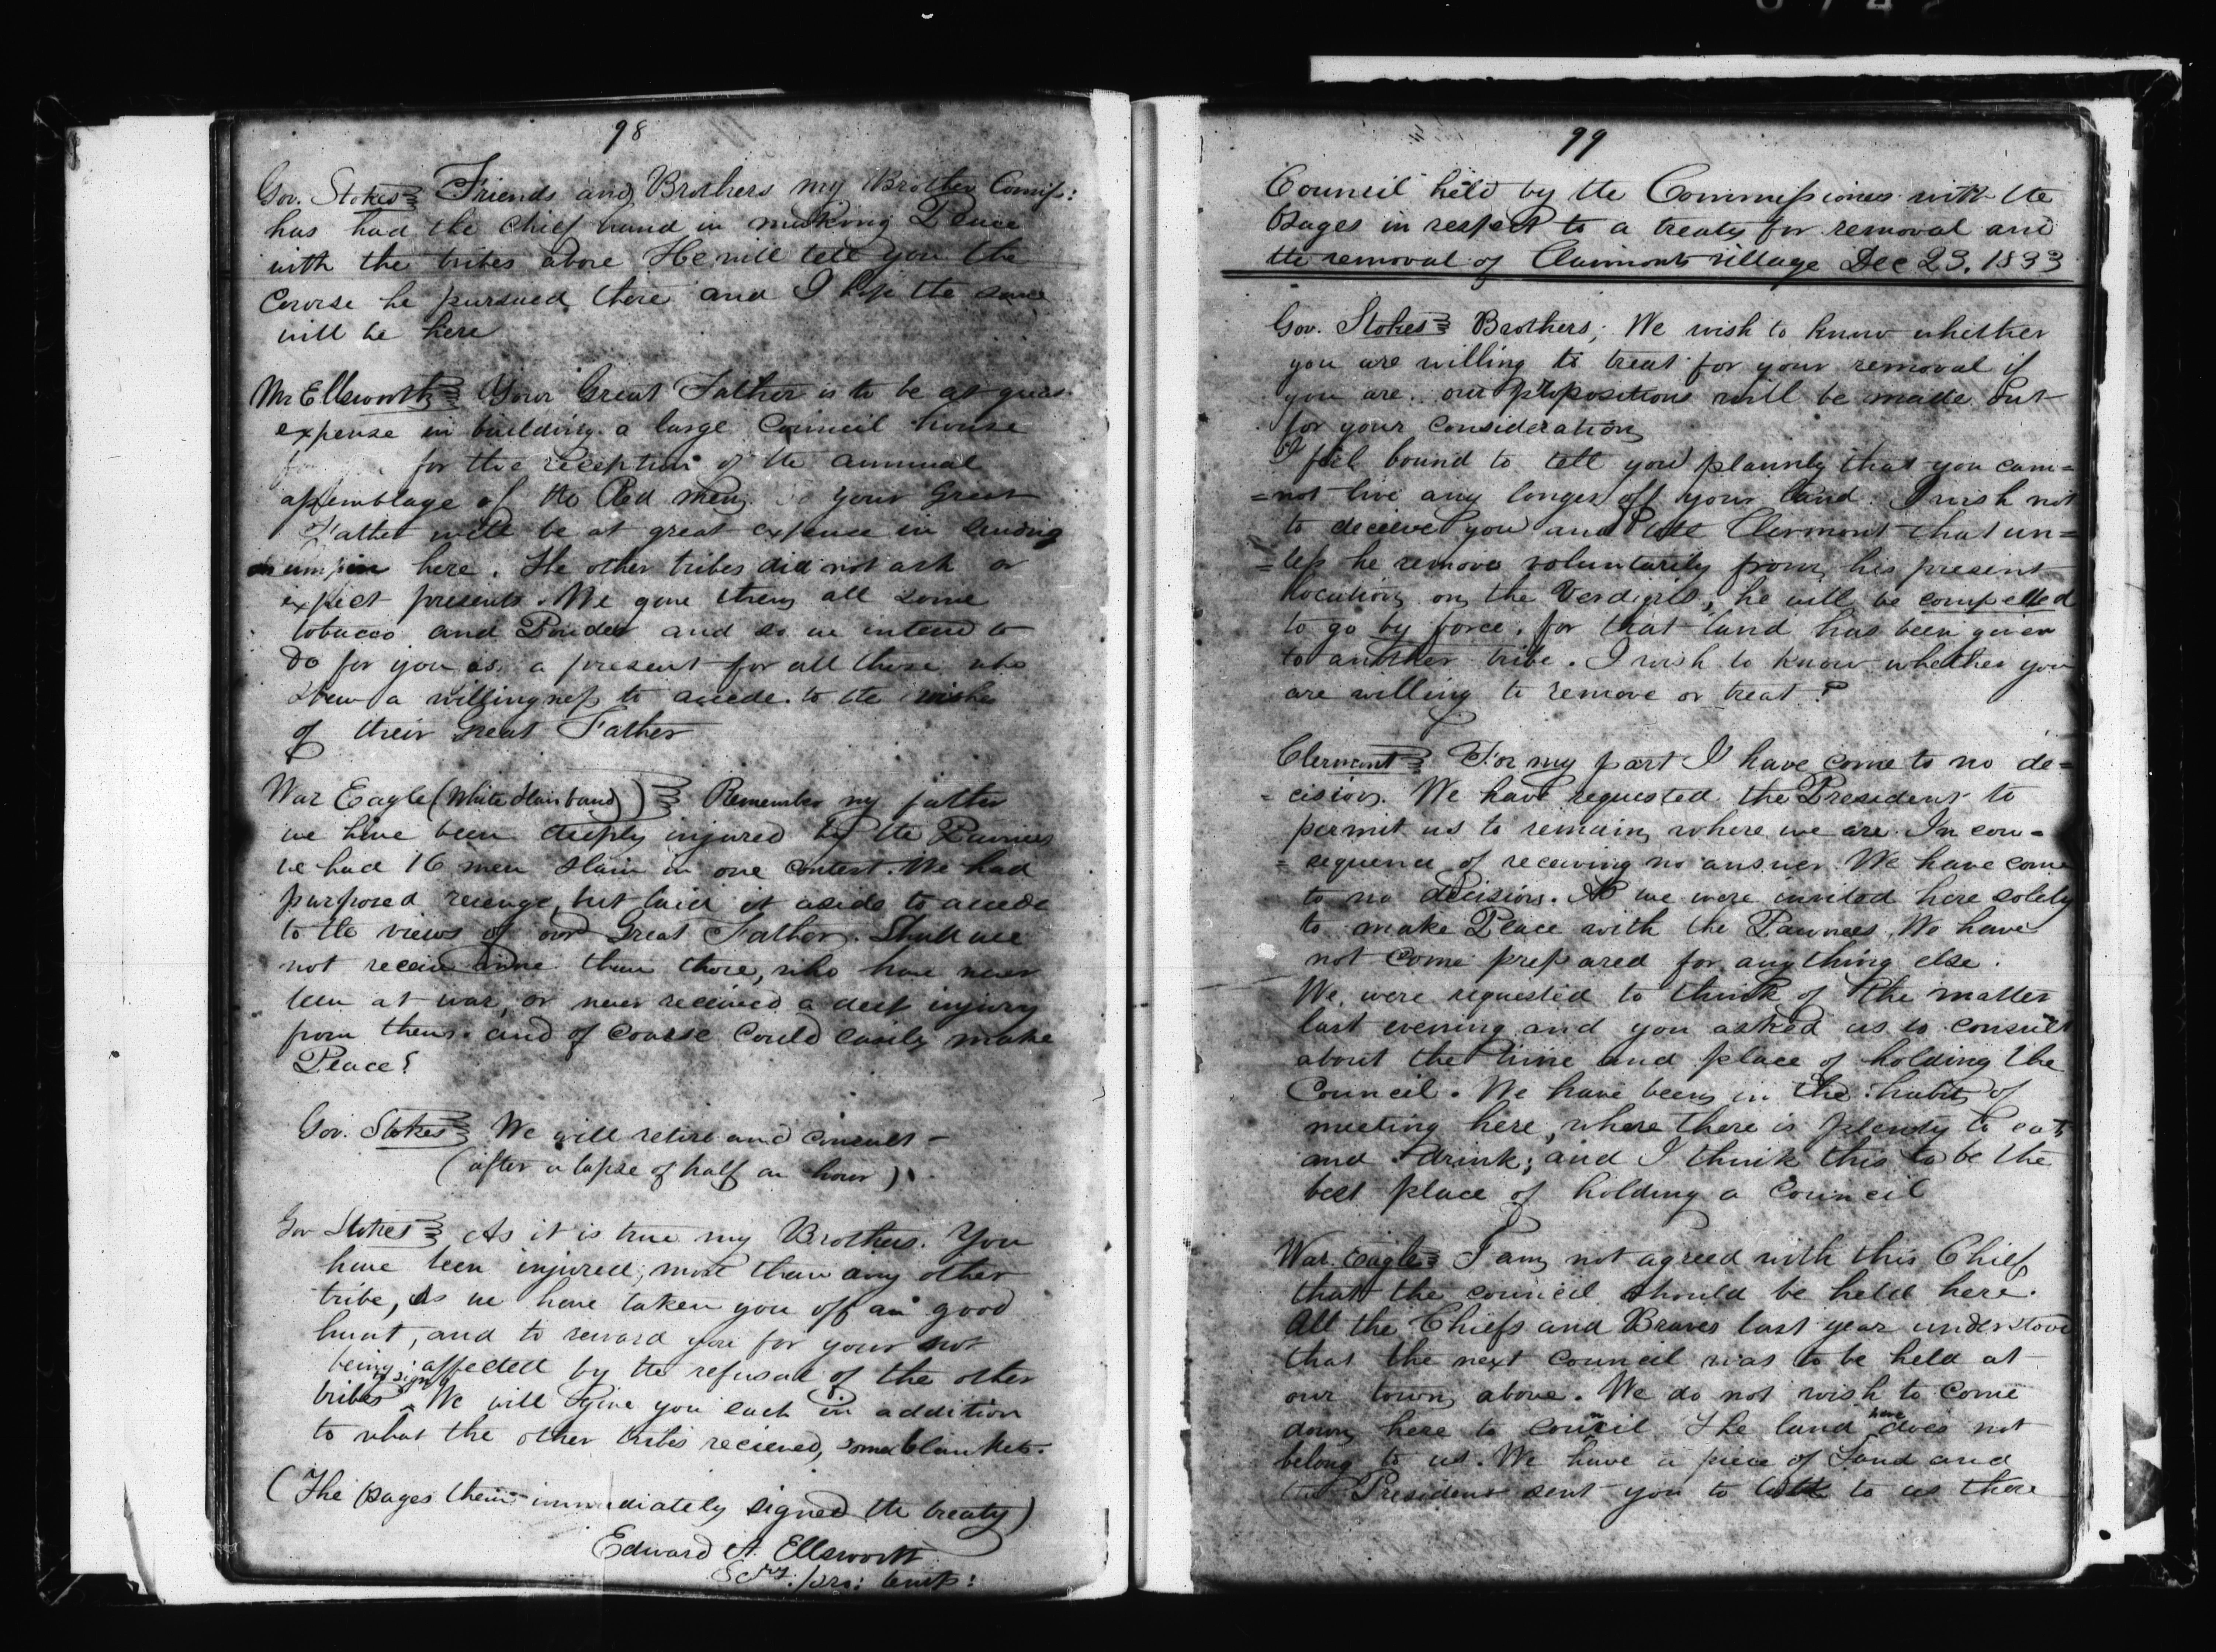 98
Gov. Stokes Friends and Brothers my Brother Comiss:
has had the chief hand in making Peace
with the tribes above He will tell you the
course he pursued there and I hope the same
will be here
Mr Ellsworth Your Great Father is to be at great
expense in building a large Council house
for the reception of the annual
assemblage of the Red Men your Great
Father will be at great expence in sending
here. The other tribes did not ask or
expect presents. We gave them all some
tobacco and Powder and so we intend to
do for you as a present for all those who
shew a willingness to accede to the wishes
of their Great Father
War Eagle (White Hair band) Remember my father
we have been deeply injured by the Pawnees
we had 16 men slain in one contest. We had
purposed revenge, but laid it aside to accede
to the views of our Great Father. Shall we
not receive more than those, who have never
been at war, or never received a deep injury
from them. and of coarse could easily make
Peace?
Gov. Stokes We will retire and consult -
(after a lapse of half an hour)
Gov Stokes As it is true my Brothers. You
have been injured, more than any other
tribe, as we have taken you off a good
hunt, and to reward you for your not
being affected by the refusal of the other
tribes to sign We will give you each in addition
to what the other tribes recieved, some blankets.
(The Osages then immediately signed the treaty)
Edward A. Ellsworth
Secry. pro: temp:
99
Council held by the Commissioners with the
Osages in respect to a treaty for removal and
the removal of Clairmonts village Dec 23. 1833
Gov. Stokes Brothers; We wish to know whether
you are willing to treat for your removal if
you are. our propositions will be made out
for your consideration
I feel bound to tell you plainly that you can=
=not live any longer off your land. I wish not
to deceive you and I tell Clermont that un=
=less he remove voluntarily from his present
location on the Verdigris, he will be compelled
to go by force. for that land has been given
to another tribe. I wish to know whether you
are willing to remove or treat?
Clermont For my part I have come to no de=
=cision. We have requested the President to
permit us to remain where we are. In con=
=sequence of receiving no answer. We have come
to no decision. As we were invited here solely
to make Peace with the Pawnees, We have
not come prepared for anything else.
We were requested to think of the matter
last evening and you asked us to consult
about the time and place of holding the
Council. We have been in the habit of
meeting here, where there is plenty to eat
and drink; and I think this to be the
best place of holding a Council
War. Eagle I am not agreed with this Chief
that the council should be held here.
All the Chiefs and Braves last year understood
that the next council was to be held at
our town above. We do not wish to come
down here to council. The land here does not
belong to us. We have a piece of Land and
the President sent you to talk to us there